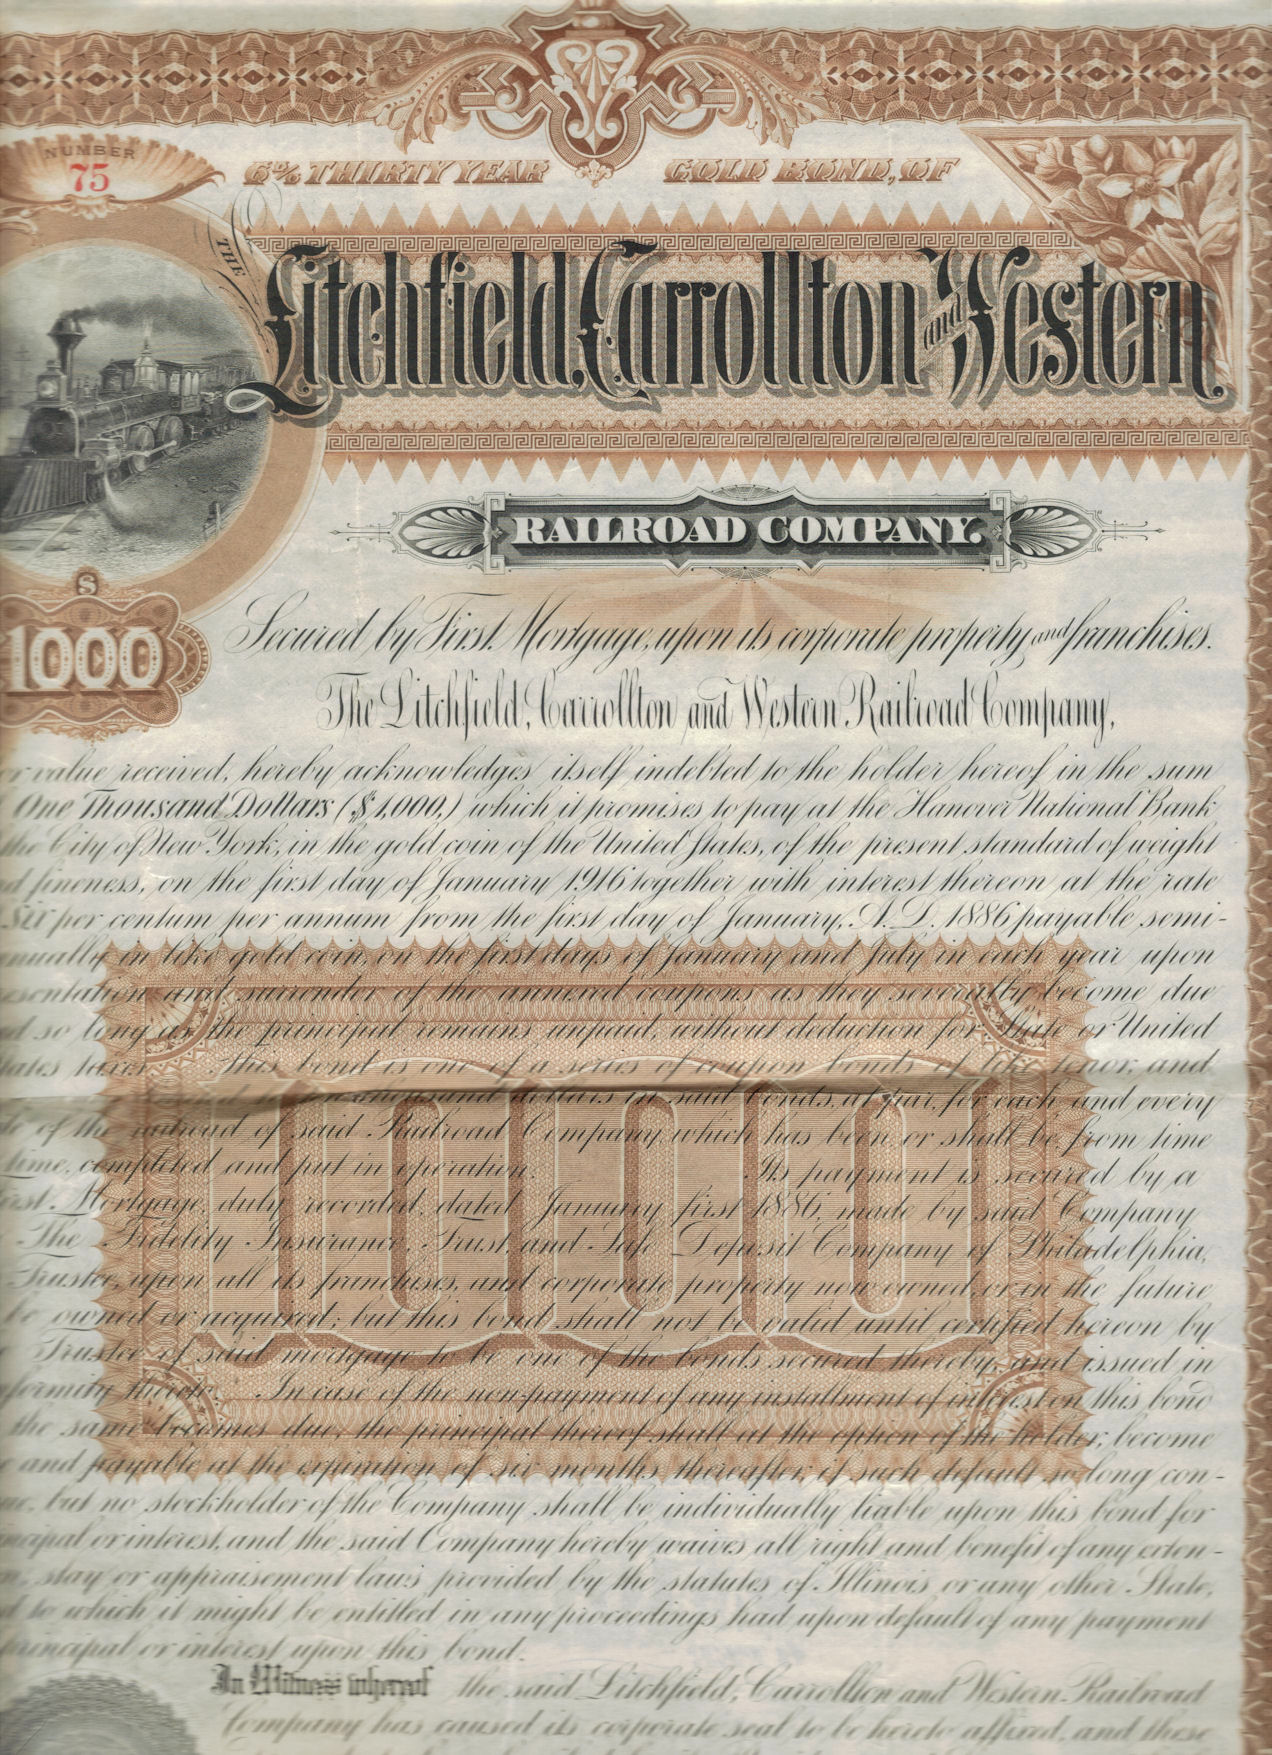 NUMBER
75
6% THIRTY YEAR GOLD BOND, OF
THE
Litchfield, Carrollton and Western
RAILROAD COMPANY.
$
1000
Secured by First Mortgage, upon its corporate property and franchises.
The Litchfield, Carrollton and Western Railroad Company,
value received, hereby acknowledges itself indebted to the holder hereof in the sum
One Thousand Dollars ($1,000,) which it promises to pay at the Hanover National Bank
the City of New York, in the gold coin of the United States, of the present standard of weight
fineness, on the first day of January 1916 together with interest thereon at the rate
Six per centum per annum from the first day of January, A.D. 1886 payable semi-
nually in like gold coin, on the first days of January and July in each year upon
esentation and surrender of the annexed coupons as they severally become due
so long as the principal remains unpaid, without deduction for State or United
tates taxes. This bond is one of a series of coupon bonds of like tenor, and
thousand dollars in said bonds, at par, for each and every
of the railroad of said Railroad Company which has been or shall be from time
time, completed and put in operation. Its payment is secured by a
Mortgage, duly recorded, dated January first 1886, made by said Company
The Fidelity Insurance, Trust, and Safe Deposit Company of Philadelphia,
Trustee, upon all its franchises, and corporate property now owned, or in the future
be owned or acquired; but this bond shall not be valid until certified hereon by
Trustee of said mortgage to be one of the bonds secured thereby, and issued in
formity thereto. In case of the non-payment of any installment of interest on this bond
the same becomes due, the principal thereof shall at the option of the holder, become
and payable at the expiration of six months thereafter, if such default so long con-
but no stockholder of the Company shall be individually liable upon this bond for
ncipal or interest, and the said Company hereby waives all right and benefit of any exten-
stay or appraisement laws provided by the statutes of Illinois or any other State,
to which it might be entitled in any proceedings had upon default of any payment
principal or interest upon this bond.
In Witness whereof the said Litchfield, Carrollton and Western Railroad
Company has caused its corporate seal to be hereto affixed, and these
1000